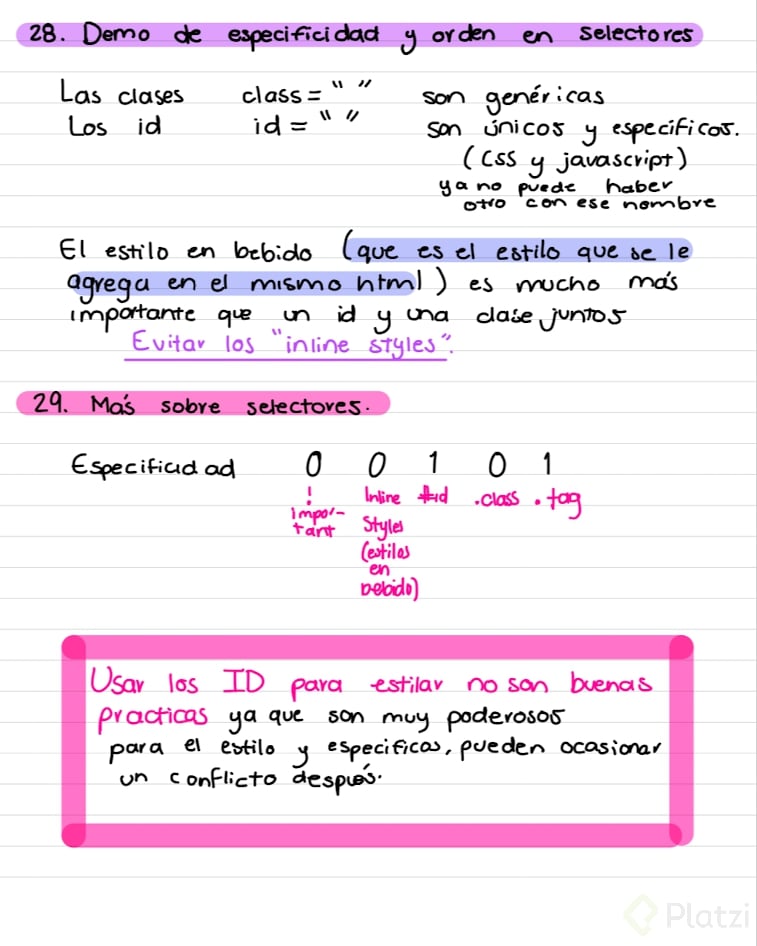 28. Demo de especificidad y orden en selectores
Las clases class=" " son genéricas
Los id id=" " son únicos y específicos.
(CSS y javascript)
ya no puede haber
otro con ese nombre
El estilo en bebido (que es el estilo que se le
agrega en el mismo html) es mucho más
importante que un id y una clase juntos
Evitar los "inline styles".
29. Más sobre selectores.
Especificidad 0 0 1 0 1
! Inline #id .class . tag
impor-
tant Styles
(estilos
en
bebido)
Usar los ID para estilar no son buenas
practicas ya que son muy poderosos
para el estilo y especificos, pueden ocasionar
un conflicto después.
Platzi